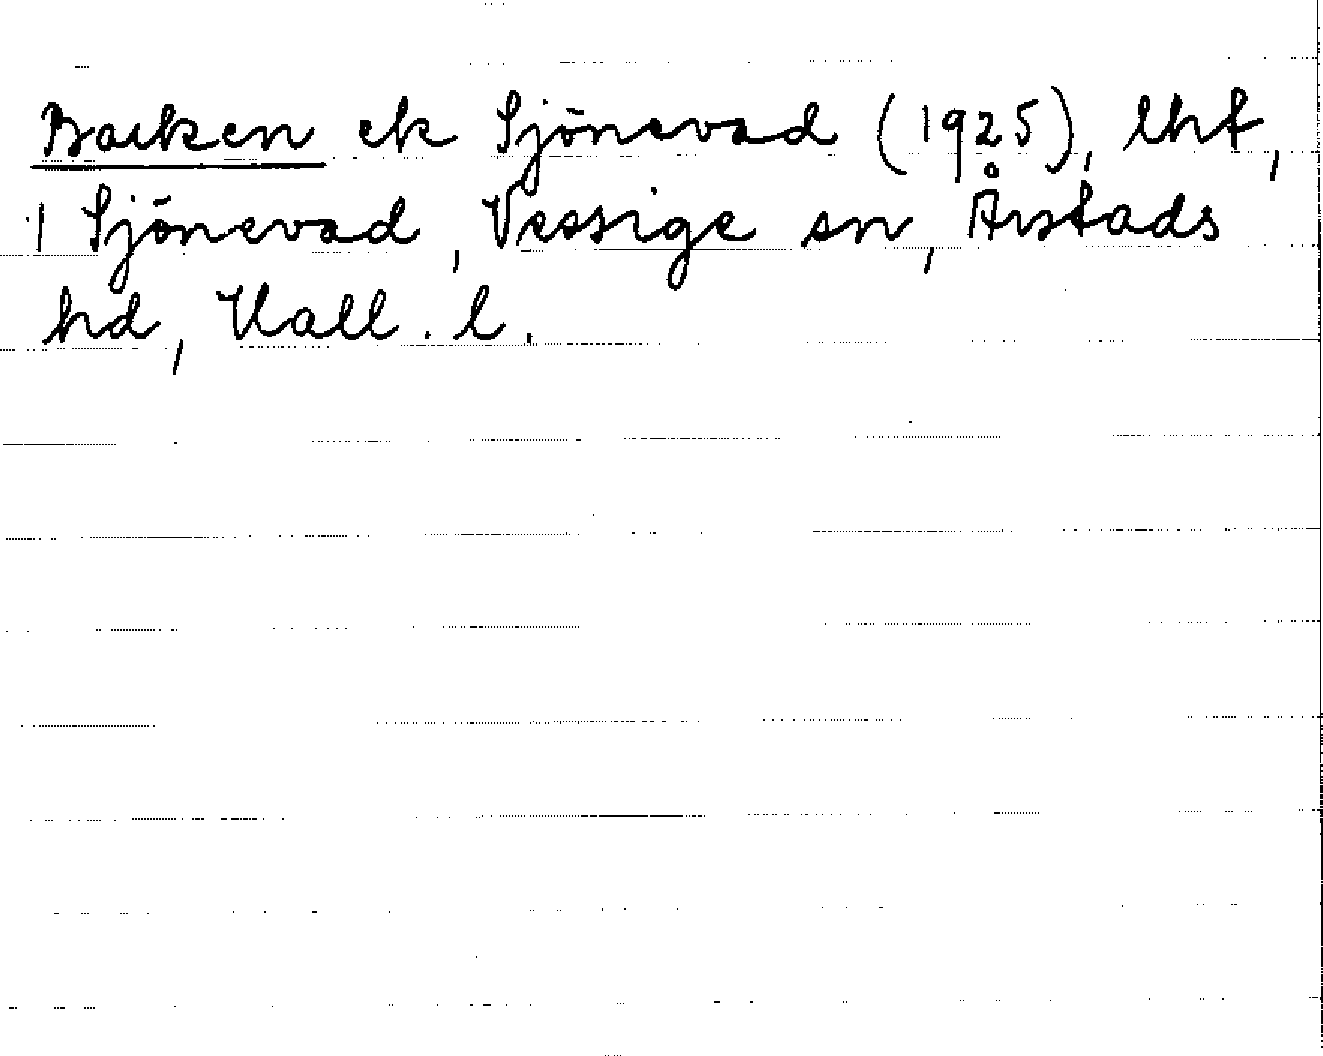 Backen ek Sjönevad (1925), lht,
1 Sjönevad, Vessige sn, Årstads
hd, Hall. l.